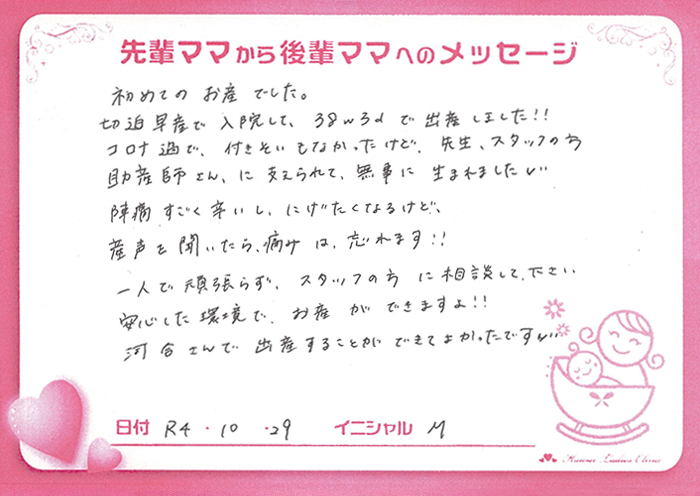 先輩ママから後輩ママへのメッセージ
初めてのお産でした。
切迫早産で入院して、38w3dで出産しました!!
コロナ過で、付きそいもなかったけど、先生、スタッフの方
助産師さん、に支えられて、無事に生まれました!!
陣痛すごく辛いし、にげたくなるけど、
産声を聞いたら、痛みは、忘れます!!
一人で頑張らず、スタッフの方に相談して下さい
安心した環境で、お産ができますよ!!
河合さんで出産することができてよかったです!!
日付 R4・10・29 イニシャル M
Kawai Ladies Clinic